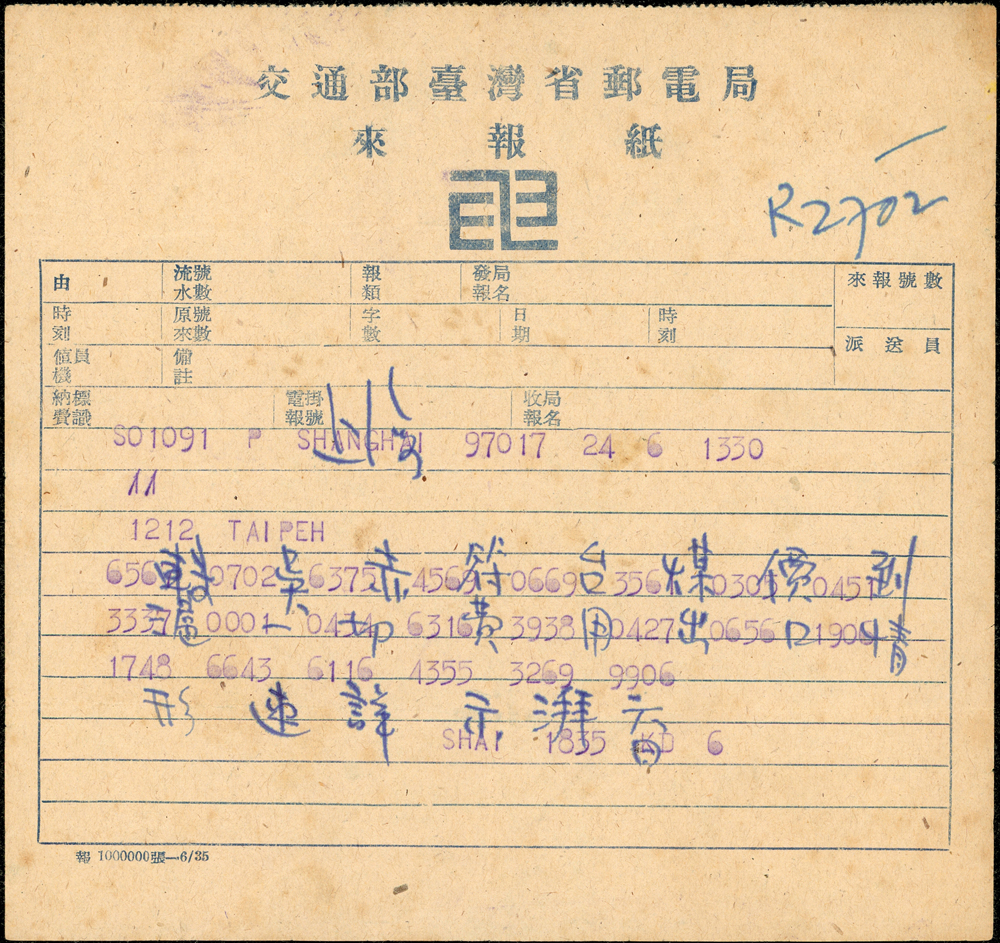 交通部臺灣省郵電局
來報紙
R2702
由 流水號數 報類 發報局名 來報號數
時刻 原來號數 字數 日期 時刻
派送員
值機員 備註
納費標識 電報掛號 收報局名
SO1091 P SHANGHAI 97017 24 6 1330
11
1212 TAIPEH
吳 赤 符 台 煤 價 到
0702 6375 4569 0669 0305 0457
滬 一 切 費 用 出 口 情
0001 0434 6316 3938 0427 0656
1748 6643 6116 4355 3269 9906
形 速 詳 示 湃 六日
SHAI 1835 KD 6
報 1000000張—6/35